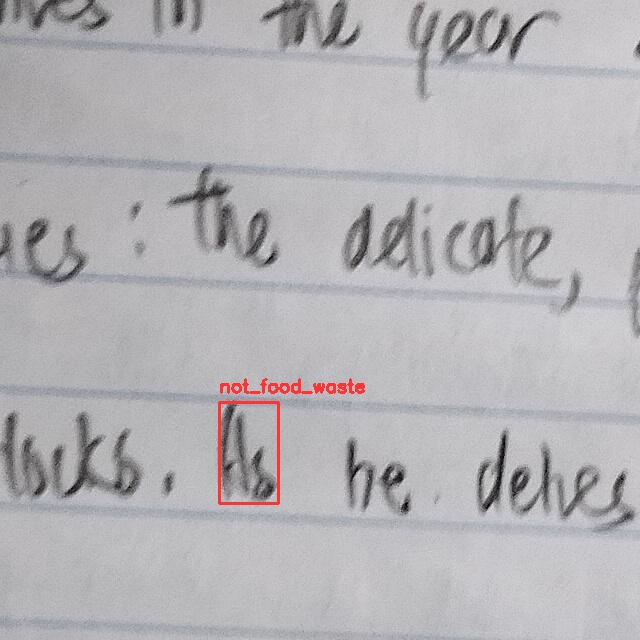 in the year
: the delicate,
not_food_waste
locks. As he delves